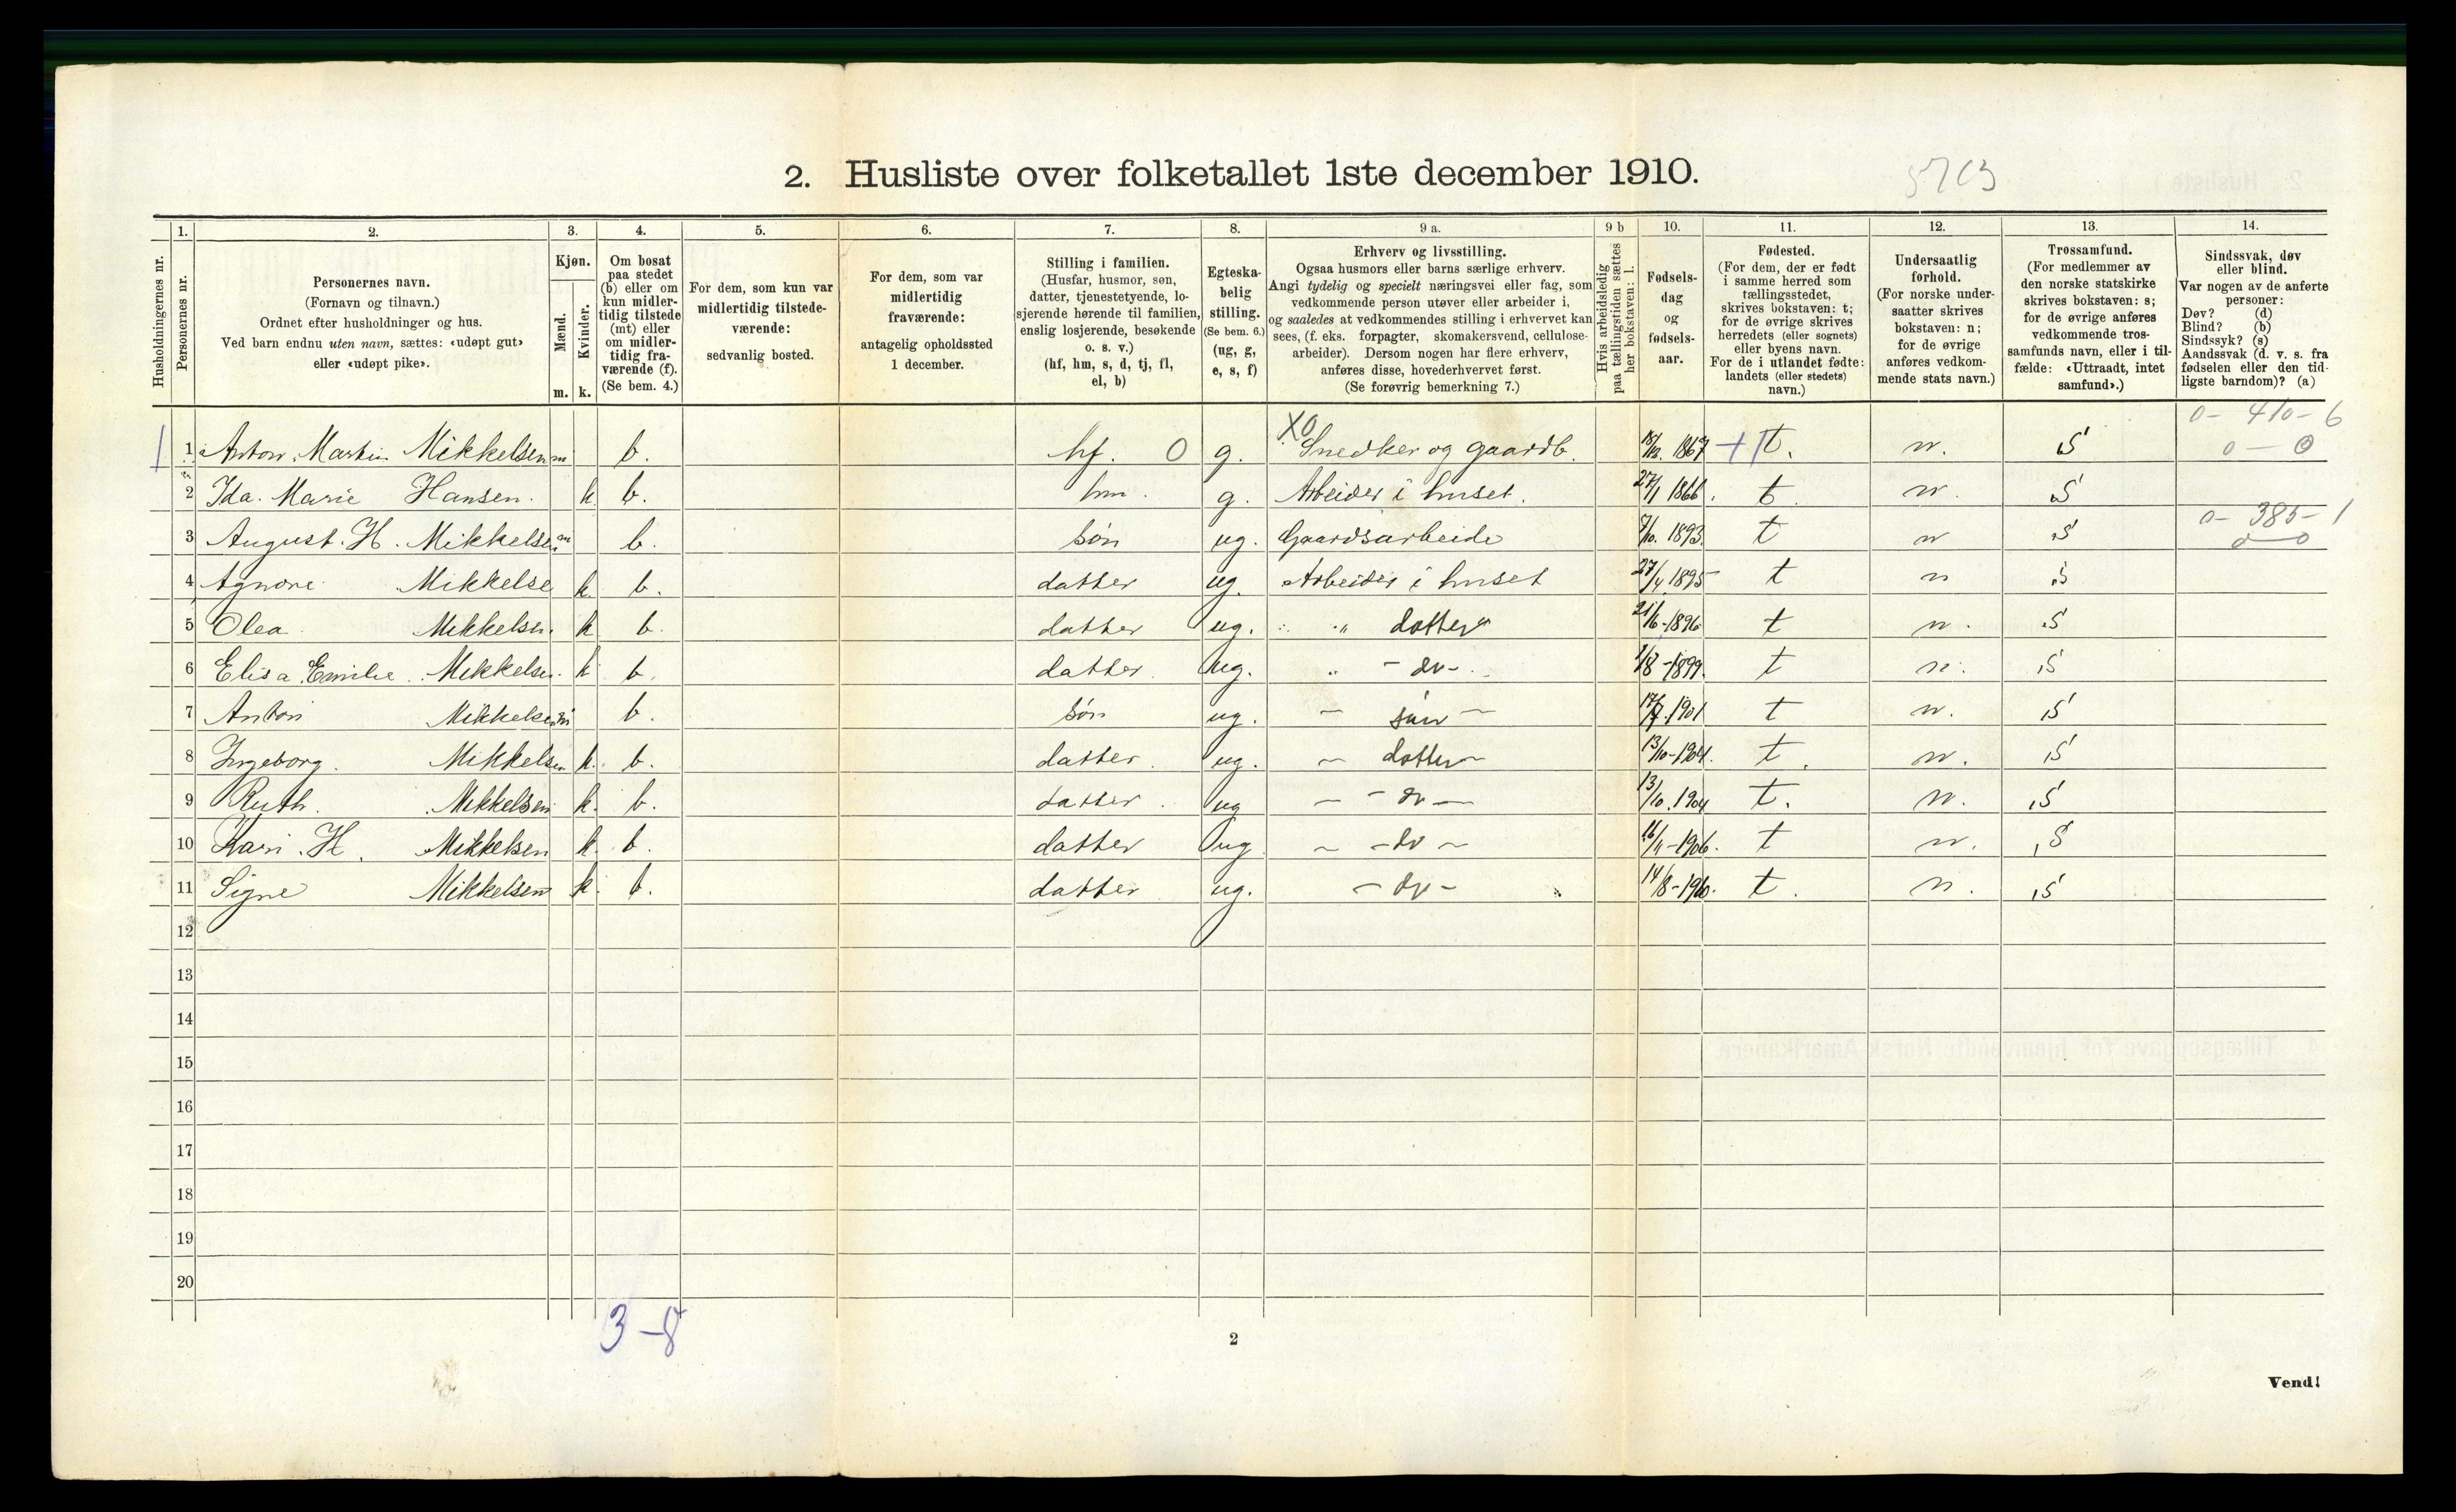 2. Husliste over folketallet 1ste december 1910.
1. 2. 3. 4. 5. 6. 7. 8. 9 a. 9 b 10. 11. 12. 13. 14.
Husholdningernes nr.
Personernes nr.
Personernes navn.
(Fornavn og tilnavn.)
Ordnet efter husholdninger og hus.
Ved barn endnu uten navn, sættes: «udøpt gut»
eller «udøpt pike».
Kjøn.
Mænd.
Kvinder.
m. k.
Om bosat
paa stedet
(b) eller om
kun midler-
tidig tilstede
(mt) eller
om midler-
tidig fra-
værende (f).
(Se bem. 4.)
For dem, som kun var
midlertidig tilstede-
værende:
sedvanlig bosted.
For dem, som var
midlertidig
fraværende:
antagelig opholdssted
1 december.
Stilling i familien.
(Husfar, husmor, søn,
datter, tjenestetyende, lo-
sjerende hørende til familien,
enslig losjerende, besøkende
o. s. v.)
(hf, hm, s, d, tj, fl,
el, b)
Egteska-
belig
stilling.
(Se bem. 6.)
(ug, g,
e, s, f)
Erhverv og livsstilling.
Ogsaa husmors eller barns særlige erhverv.
Angi tydelig og specielt næringsvei eller fag, som
vedkommende person utøver eller arbeider i,
og saaledes at vedkommendes stilling i erhvervet kan
sees, (f. eks. forpagter, skomakersvend, cellulose-
arbeider). Dersom nogen har flere erhverv,
anføres disse, hovederhvervet først.
(Se forøvrig bemerkning 7.)
Hvis arbeidsledig
paa tællingstiden sættes
her bokstaven: l.
Fødsels-
dag
og
fødsels-
aar.
Fødested.
(For dem, der er født
i samme herred som
tællingsstedet,
skrives bokstaven: t;
for de øvrige skrives
herredets (eller sognets)
eller byens navn.
For de i utlandet fødte:
landets (eller stedets)
navn.)
Undersaatlig
forhold.
(For norske under-
saatter skrives
bokstaven: n;
for de øvrige
anføres vedkom-
mende stats navn.)
Trossamfund.
(For medlemmer av
den norske statskirke
skrives bokstaven: s;
for de øvrige anføres
vedkommende tros-
samfunds navn, eller i til-
fælde: «Uttraadt, intet
samfund».)
Sindssvak, døv
eller blind.
Var nogen av de anførte
personer:
Døv? (d)
Blind? (b)
Sindssyk? (s)
Aandssvak (d. v. s. fra
fødselen eller den tid-
ligste barndom)? (a)
0- 410-6
1 1 Anton Martin Mikkelsen m b. hf. 0 g. X0 Snedker og gaardb. 1867 t. n. S 0 - 0
2 Ida Marie Hansen. k b. hm. g. Arbeider i huset. 27/1 1866. t. n. S
0- 385-1
3 August. H. Mikkelsen m b. søn ug. Gaardsarbeide 7/10. 1893. t n S 0-0
4 Mikkelse k. b. datter ug. Arbeider i huset 27/4 1895 t n S
5 Olea Mikkelsen. k b. datter ug. " datter 21/6-1896 t n. S
6 Elisa Emilie Mikkelsen. k b. datter ug. " -do- 1/8-1899. t n. S
7 Anton Mikkelsen m b. søn ug. - søn - 1901 t n. S
8 Ingeborg Mikkelsen k. b. datter. ug. - datter - 13/10-1904. t. n. S
9 Ruth. Mikkelsen k. b. datter. ug - - do - 13/10. 1904 t. n. S
10 Kari. H. Mikkelsen k. b. datter ug - -do - 1906. t n. S
11 Signe Mikkelsen k. b. datter ug. -do- 14/8-1910. t. n. S
12
13
14
15
16
17
18
19
20
3-8
2
Vend!